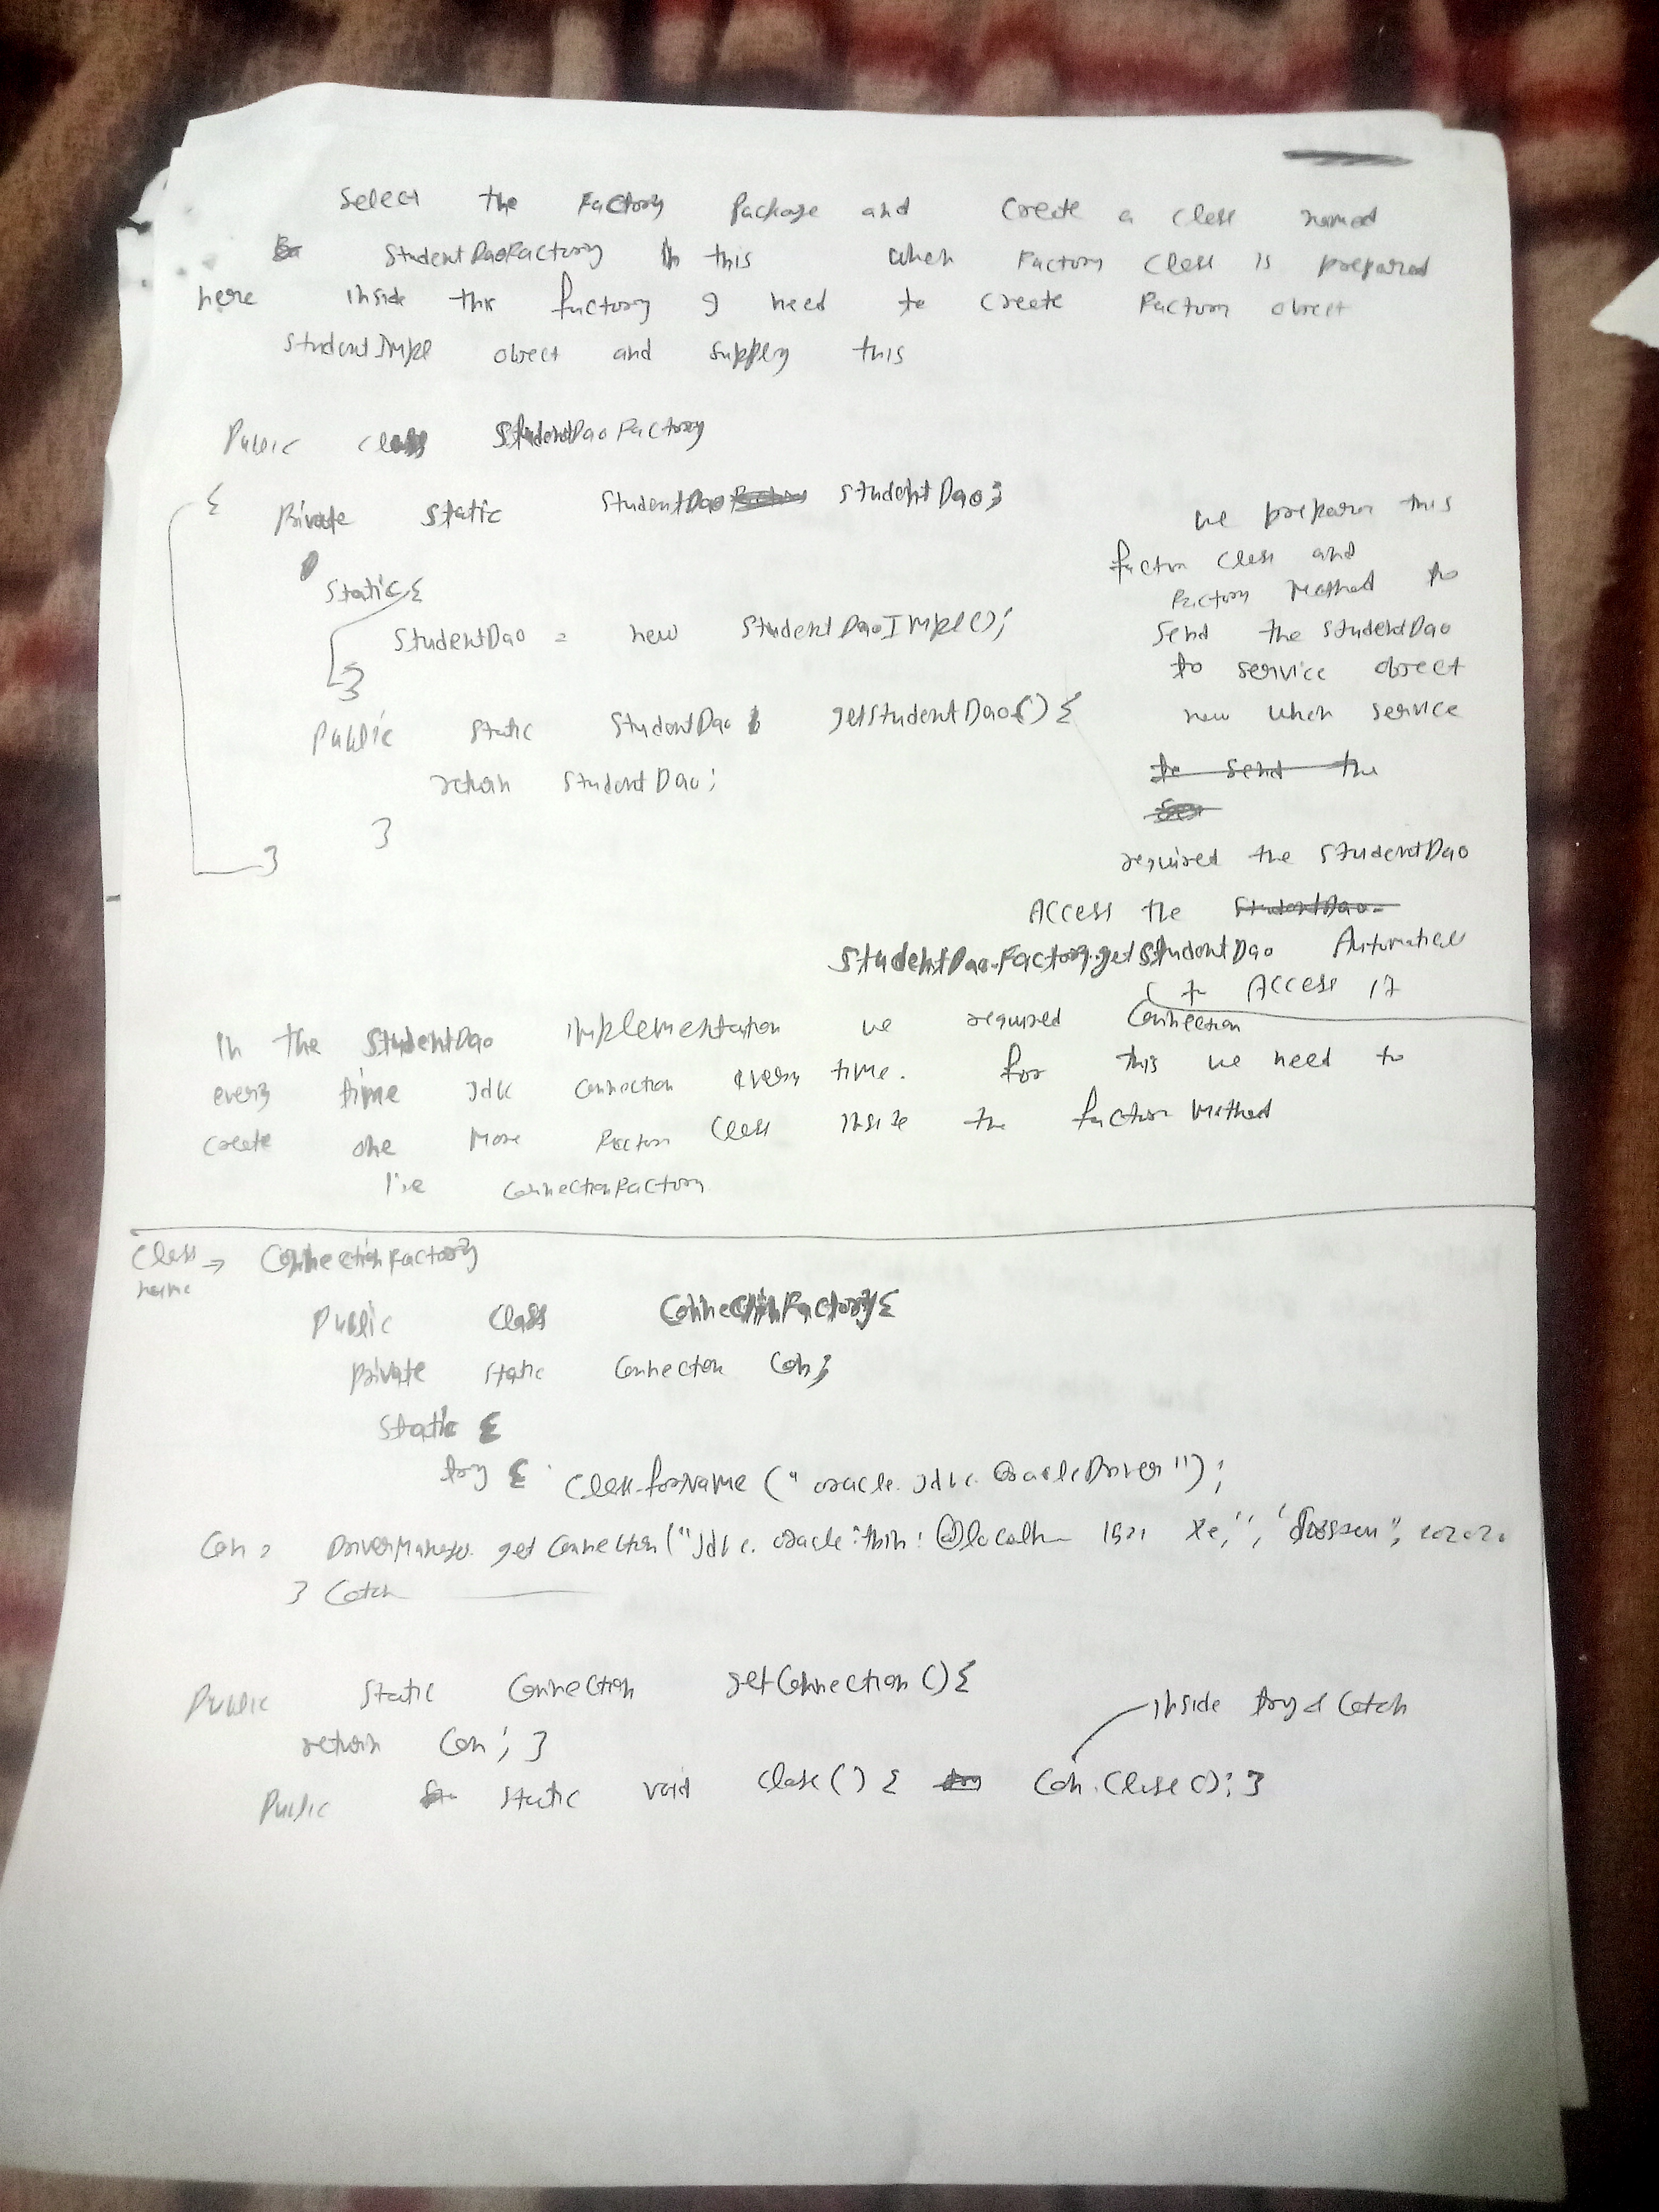 Select the Factory Package and Create a Class named
StudentDaoFactory In this when Factory class is prepared
here inside this factory I need to create Factory object
StudentImpl object and supply this
Public class StudentDaoFactory
{
Private static StudentDao studentDao;
Static {
StudentDao = new StudentDaoImpl();
}
Public static StudentDao getStudentDao() {
return StudentDao;
}
}
we prepare this
factory class and
Factory Method to
Send the StudentDao
to service object
now when service
to send the
required the StudentDao
Access the StudentDao
StudentDao.Factory.getStudentDao
Access it
In the StudentDao implementation we required Connection
every time Jdbc connection every time. for this we need to
create one More Factory Class inside the factory Method
I.e ConnectionFactory
Class name → ConnectionFactory
Public Class ConnectionFactory {
private static Connection Con;
Static {
try { Class.forName ("oracle.Jdbc.OracleDriver");
Con = DriverManager.getConnection("Jdbc.oracle:thin:@localh 1521 Xe,",
} Catch
Public static Connection getConnection () {
return Con; }
inside try & Catch
Public static void close() { Con.Close(); }